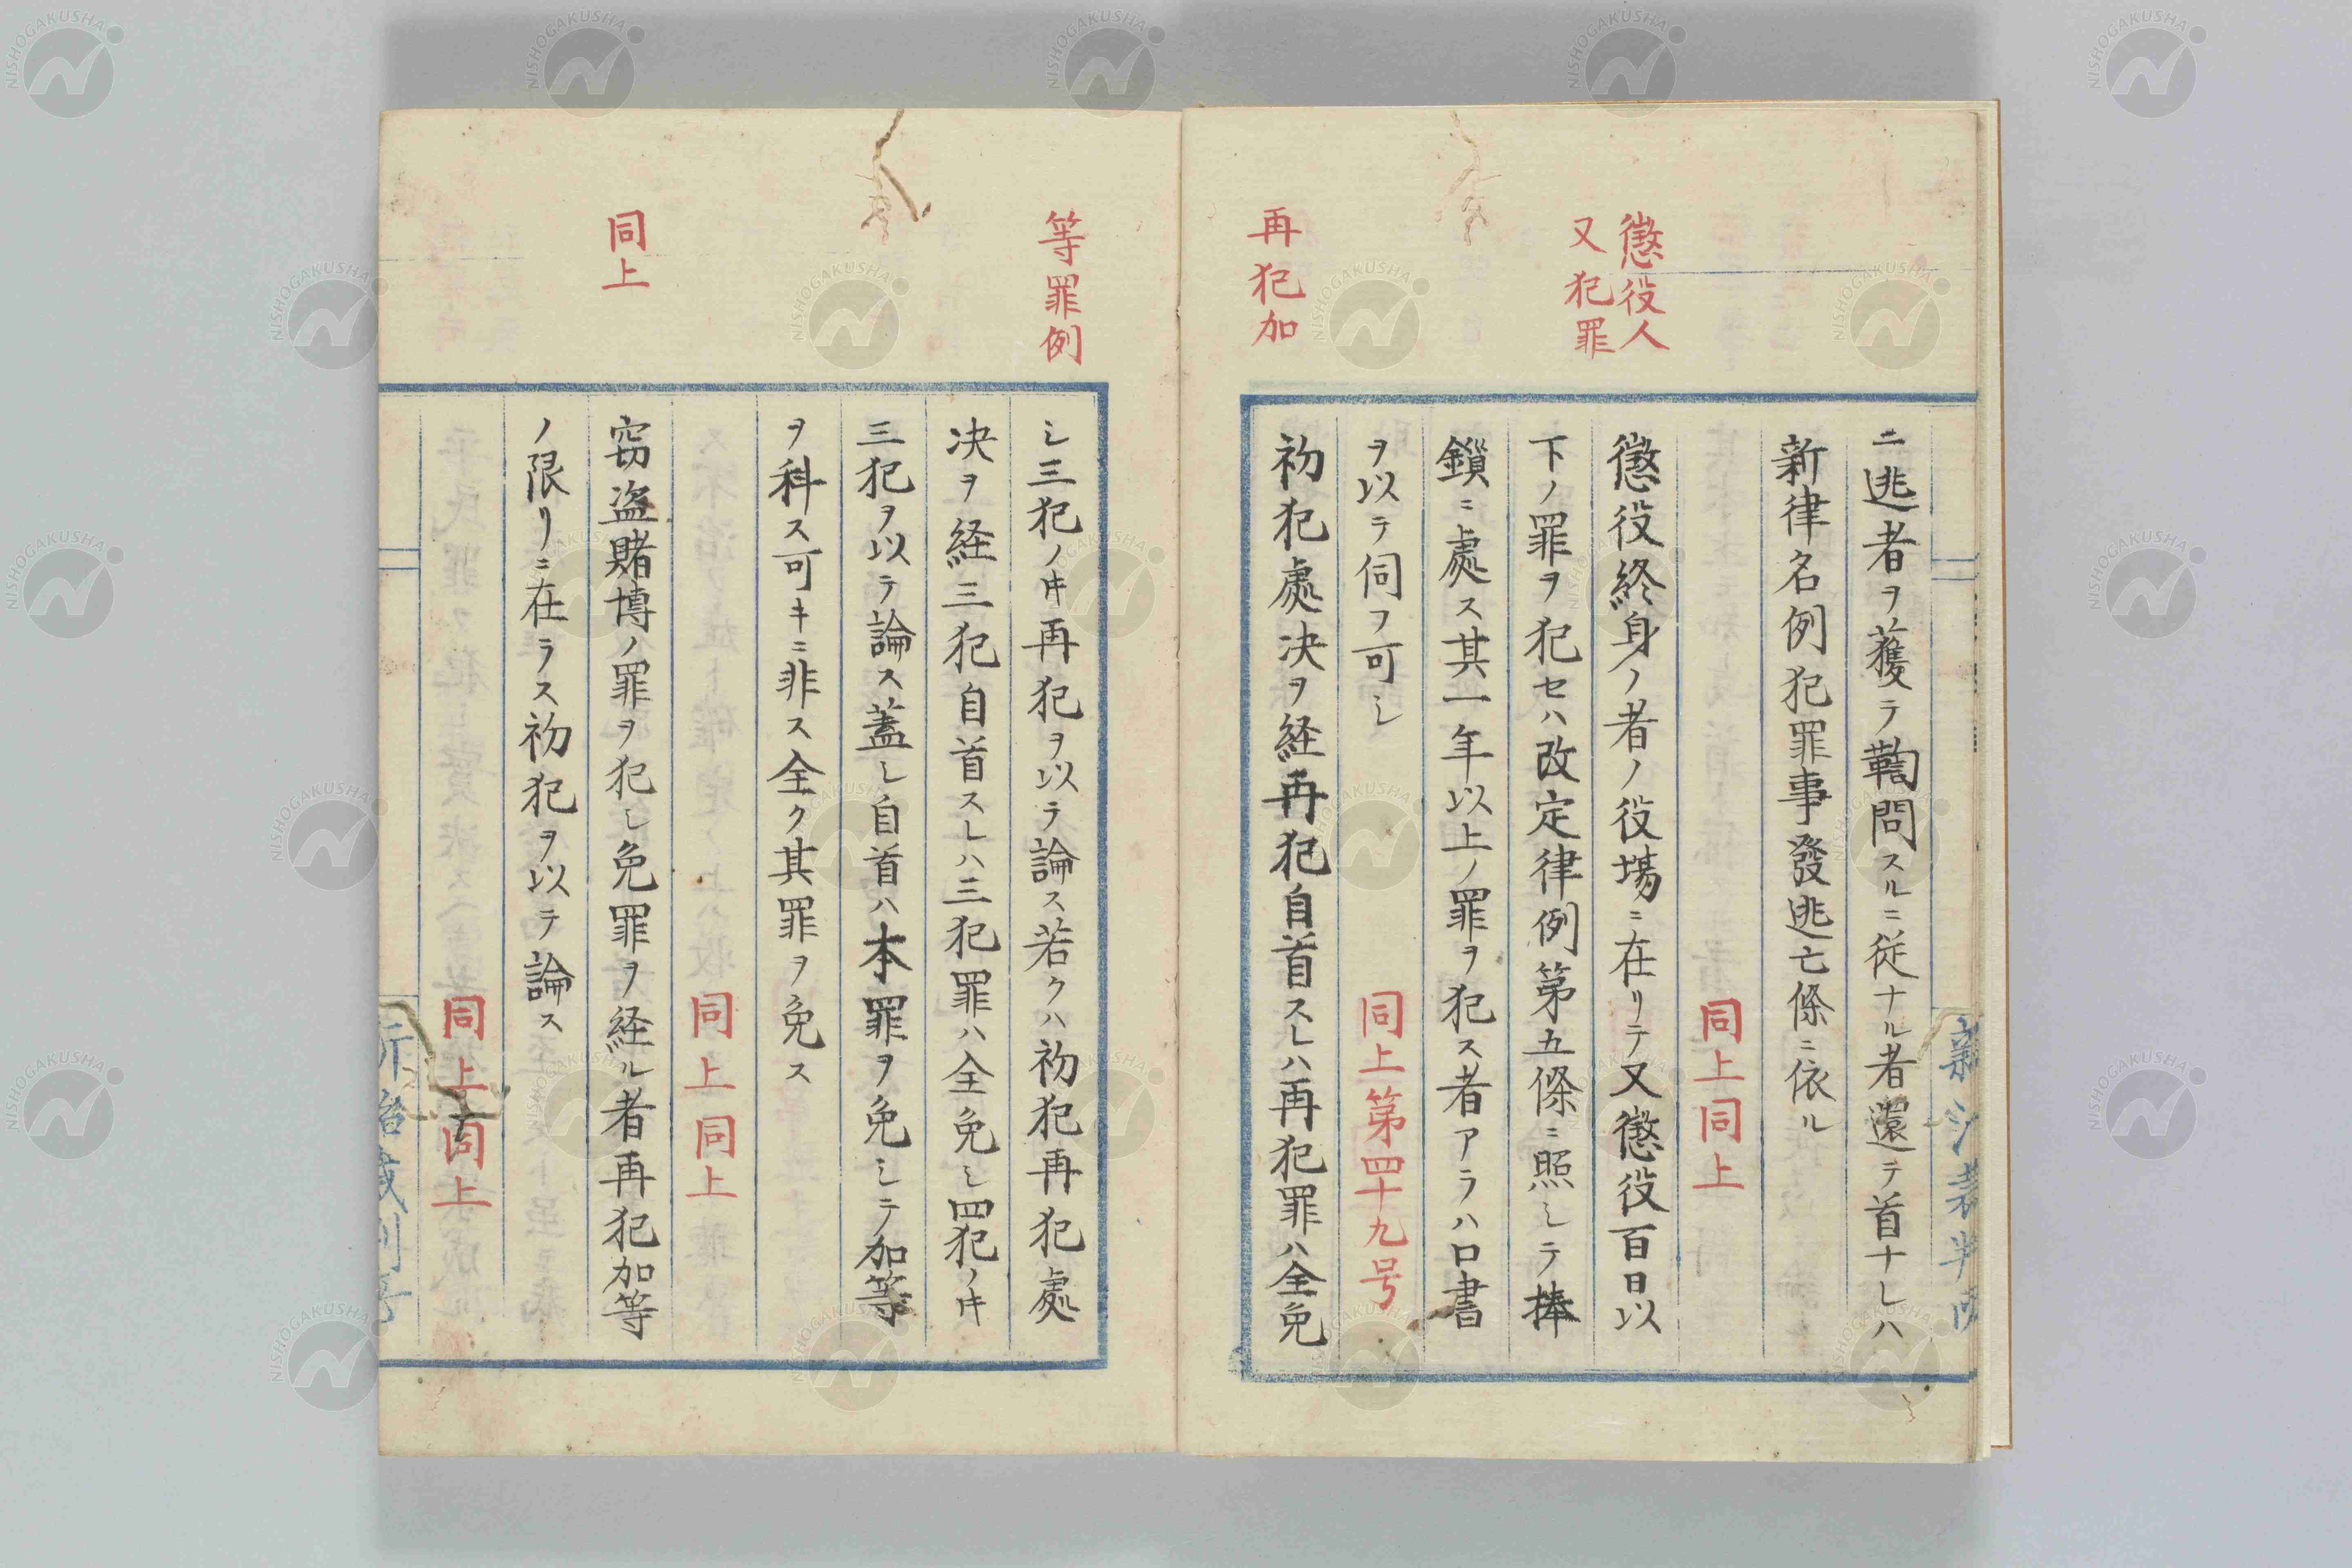 ニ逃者ヲ獲テ鞫問スルニ従ナル者還テ首ナレハ
新律名例犯罪事發逃亡條ニ依ル
同上同上
懲役人
又犯罪
懲役終身ノ者ノ役場ニ在リテ又懲役百日以
下ノ罪ヲ犯セハ改定律例第五條ニ照シテ捧
鎖ニ處ス其一年以上ノ罪ヲ犯ス者アラハ口書
ヲ以テ伺フ可シ
同上第四十九号
再犯加
初犯處决ヲ経再犯自首スレハ再犯罪ハ全免
等罪例
シ三犯ノ𪜈再犯ヲ以テ論ス若クハ初犯再犯處
决ヲ経三犯自首スレハ三犯罪ハ全免シ四犯ノ𪜈
三犯ヲ以テ論ス蓋シ自首ハ本罪ヲ免シテ加等
ヲ科ス可キニ非ス全ク其罪ヲ免ス
同上同上
同上
窃盗賭博ノ罪ヲ犯シ免罪ヲ経ル者再犯加等
ノ限リニ在ラス初犯ヲ以テ論ス
同上同上
NISHOGAKUSHA